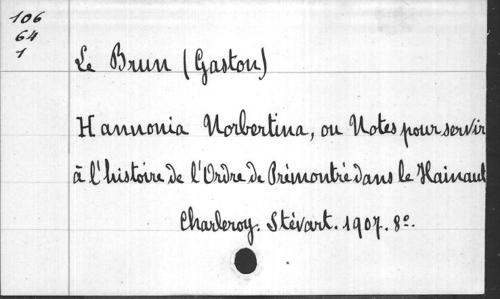 106
64
1
Le Brun (Gaston)
Hannonia Norbertina, ou Notes pour servir
à l'histoire de l'Ordre de Prémontré dans le Hainaut
Charleroy. Stévart. 1907. 8º.